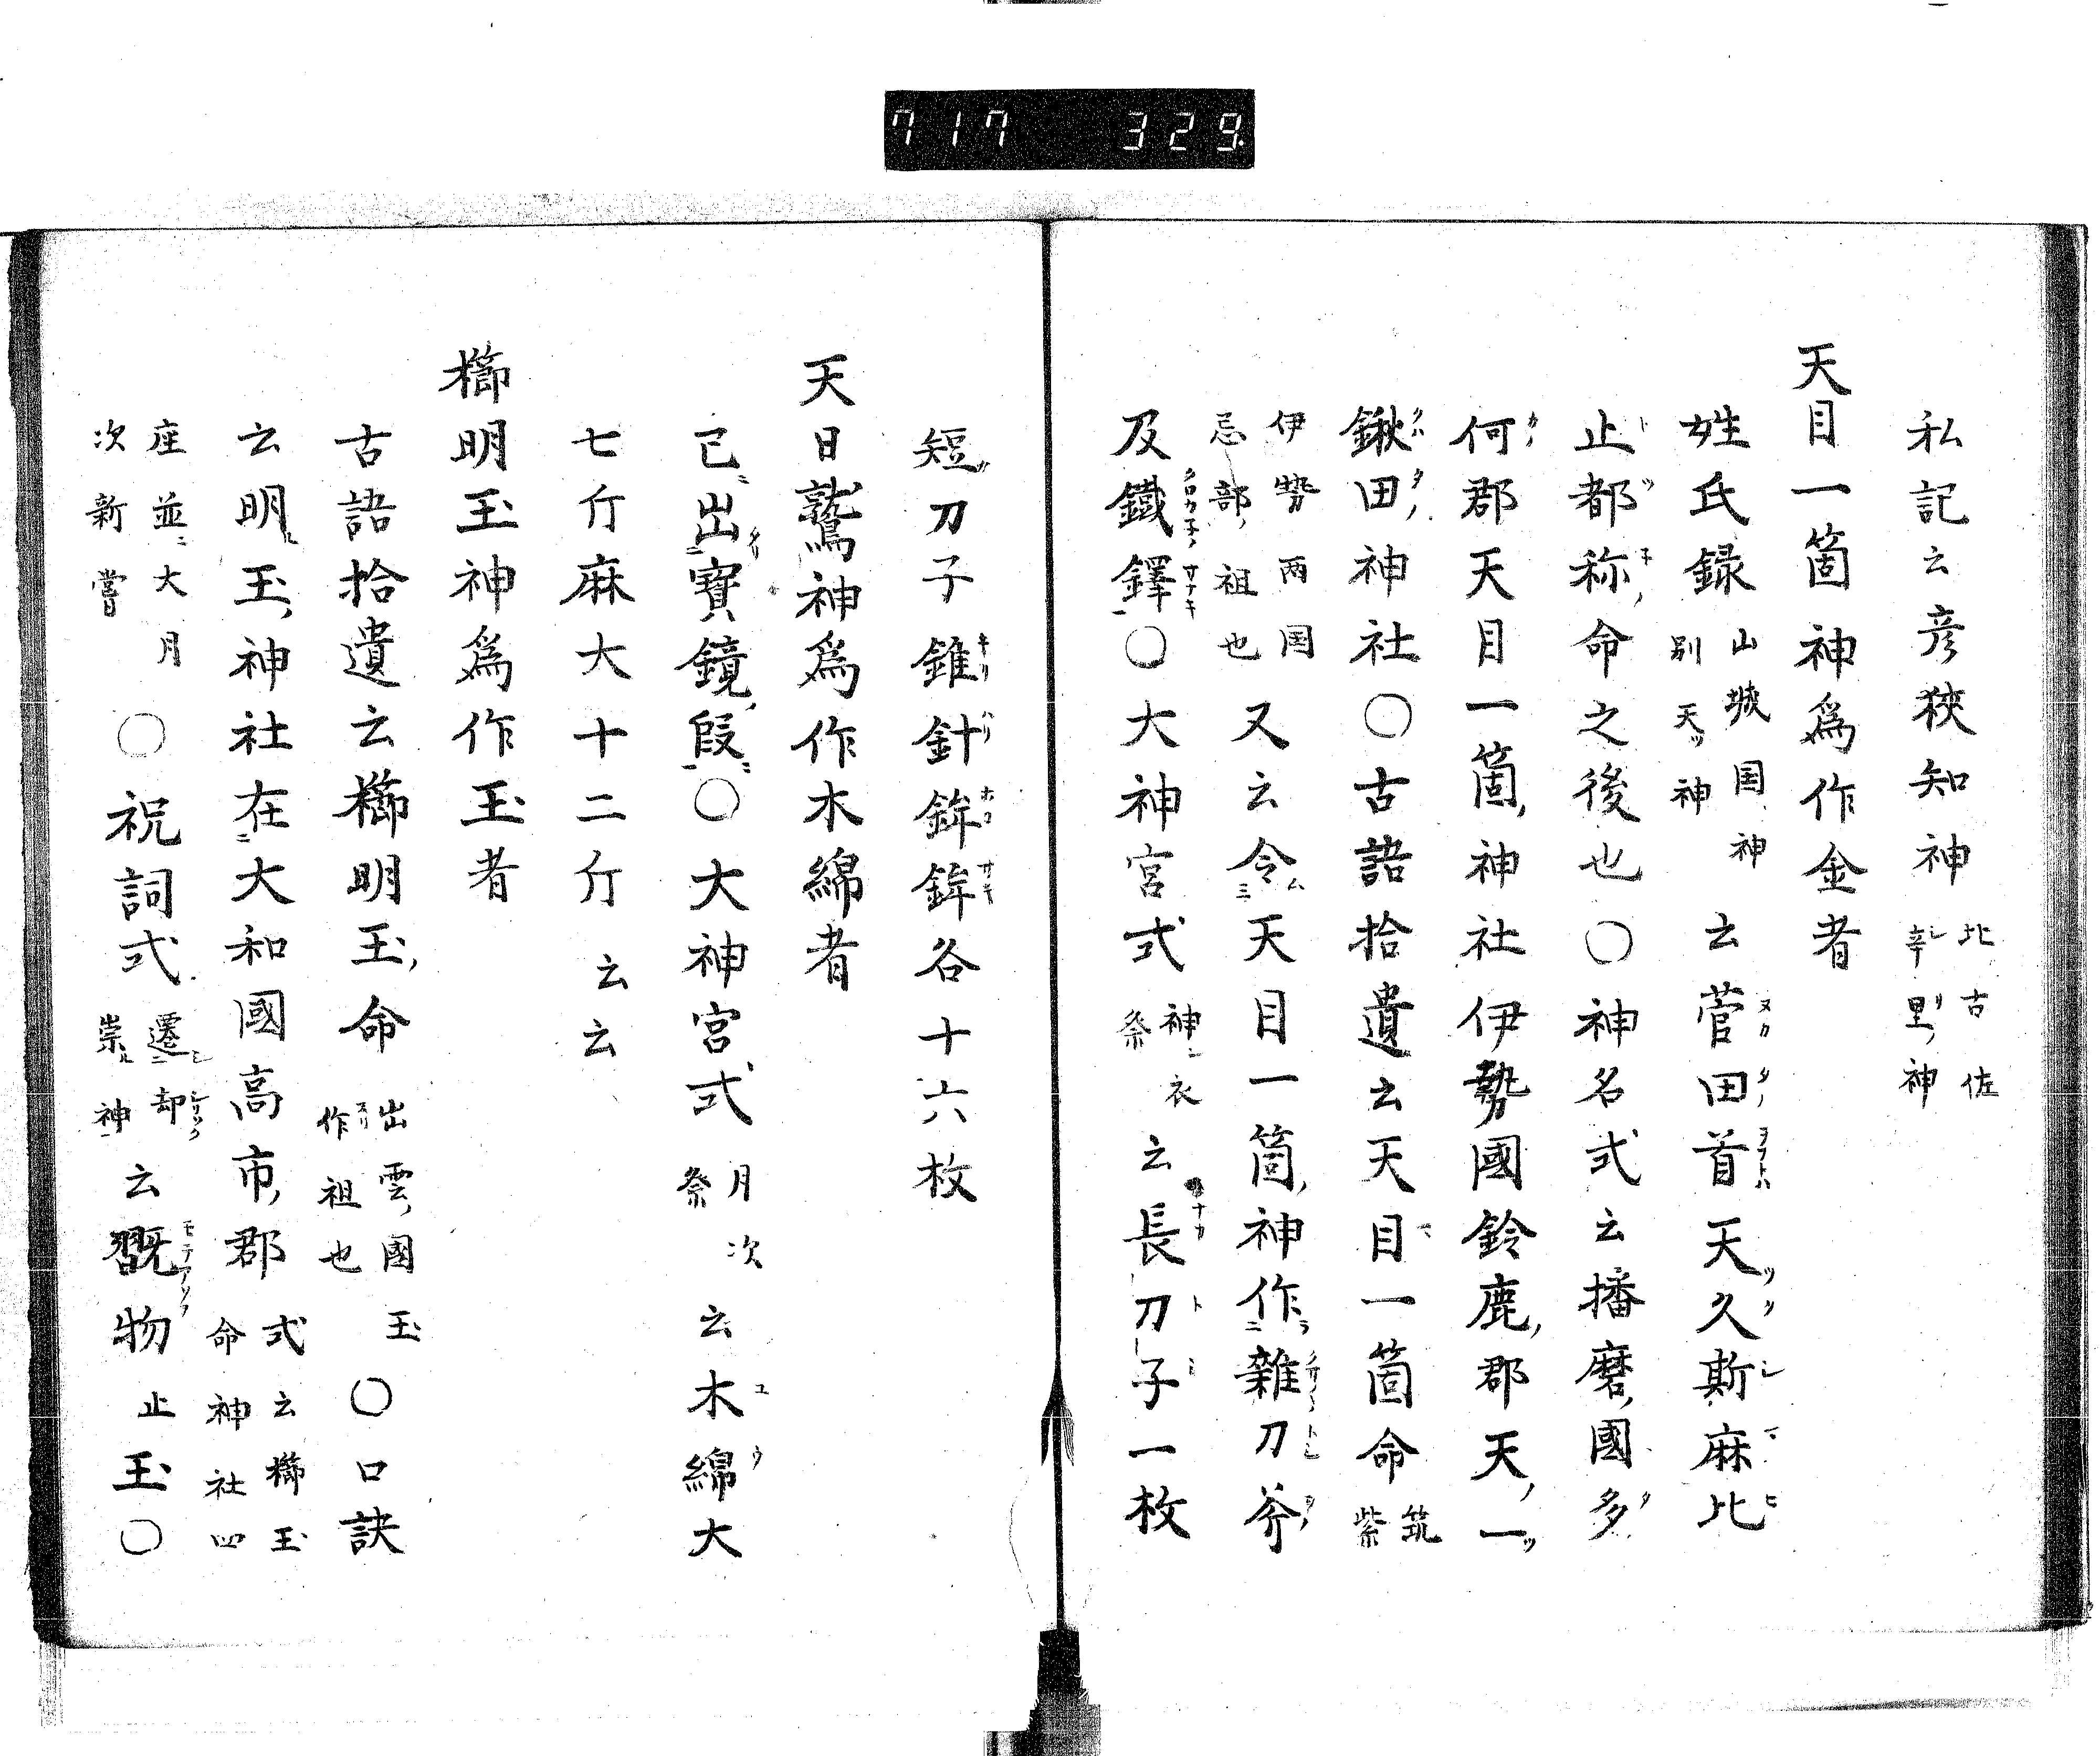 717 329
私記云彦狹知神 比古佐 辛里神
天目一箇神爲作金者
姓氏録 山城国神別天神 云菅田首天久斯麻比
止都称命之後也○神名式云播磨國多
何郡天目一箇神社伊勢國鈴鹿郡天一
鍬田神社○古語拾遺云天目一箇命 筑紫
伊勢両国忌部祖也 又云令天目一箇神作雜刀斧
及鐵鐸○大神宮式 神衣祭 云長刀子一枚
短刀子錐針鉾鉾各十六枚
天日鷲神爲作木綿者
已出寶鏡段○大神宮式 月次祭 云木綿大
七斤麻大十二斤云云
櫛明玉神爲作玉者
古語拾遺云櫛明玉命 出雲國玉作祖也 ○口訣
云明玉神社在大和國高市郡 式云櫛玉命神社四
座並大月次新嘗 ○祝詞式 遷却崇神 云翫物止玉○